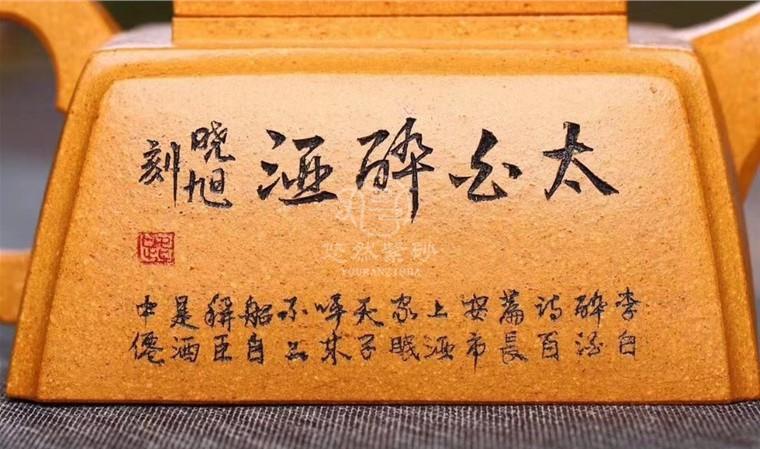 太白醉酒
晓旭
刻
李白
醉酒
诗百
篇長
安市
上酒
家眠
天子
呼来
不上
船自
稱臣
是酒
中僊
悠然紫砂
YOURANZISHA